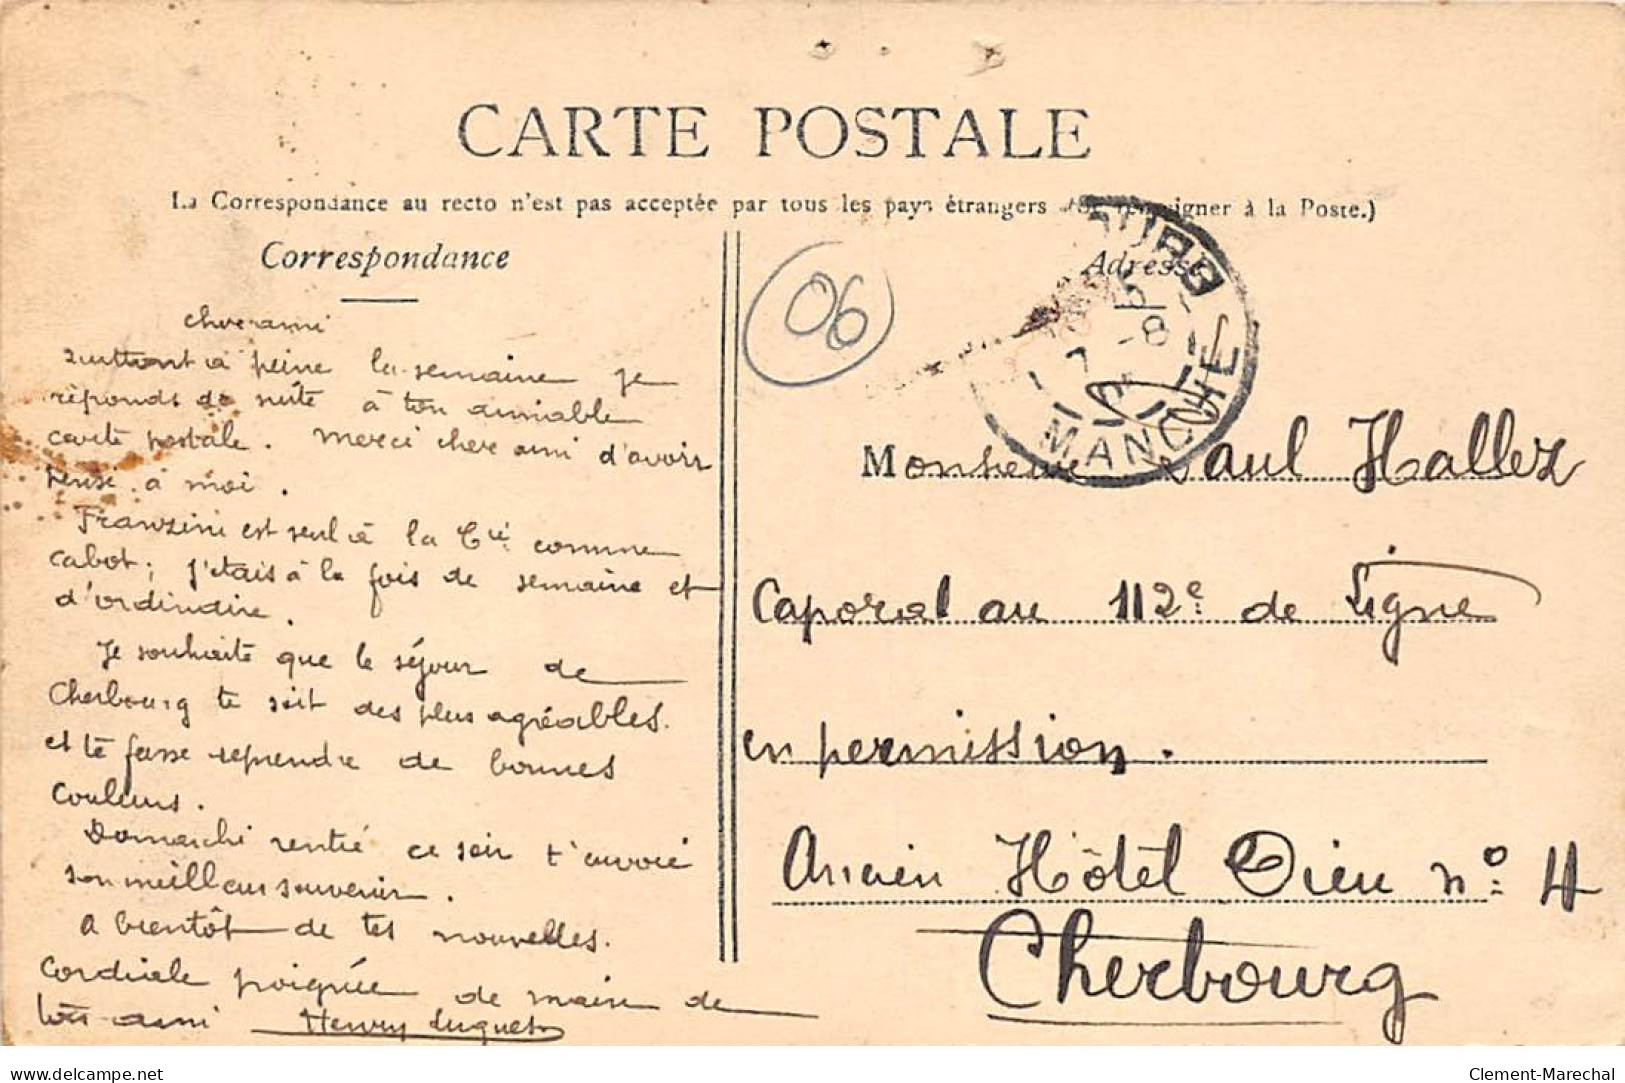 CARTE POSTALE
La Correspondance au recto n'est pas acceptée par tous les pays étrangers (Se renseigner à la Poste.)
Correspondance
Adresse
06
cher ami
quittant à peine la semaine je
réponds de suite à ton aimable
carte postale. Merci cher ami d'avoir
pensé à moi.
Franzini est seul à la Cie comme
cabot; j'étais à la fois de semaine et
d'ordinaire.
Je souhaite que le séjour de
Cherbourg te soit des plus agréables.
et te fasse reprendre de bonnes
couleurs.
Domarchi rentré ce soir t'envoie
son meilleur souvenir.
A bientôt de tes nouvelles.
Cordiale poignée de main de
ton ami Henry
MANCHE
Monsieur Paul Hallez
Caporal au 112e de Ligne
en permission.
Ancien Hôtel Dieu n° 4
Cherbourg
www.delcampe.net
Clement-Marechal